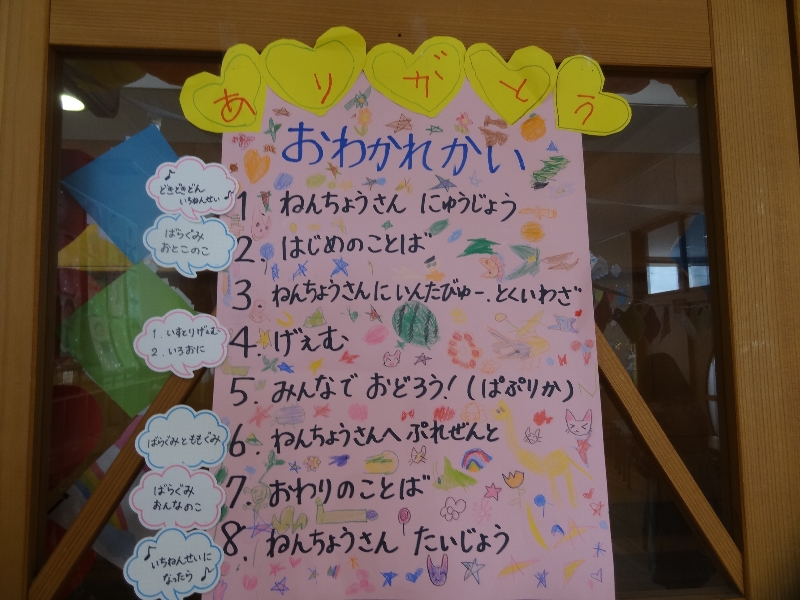 ありがとう
おわかれかい
♪どきどきどん
いちねんせい♪
1 ねんちょうさん にゅうじょう
ばらぐみ
おとこのこ
2. はじめのことば
3. ねんちょうさんにいんたびゅー、とくいわざ
1. いすとりげぇむ
2. いろおに
4. げぇむ
5. みんなで おどろう!(ぱぷりか)
ばらぐみとももぐみ
6. ねんちょうさんへ ぷれぜんと
ばらぐみ
おんなのこ
7. おわりのことば
♪いちねんせいに
なったら♪
8. ねんちょうさん たいじょう